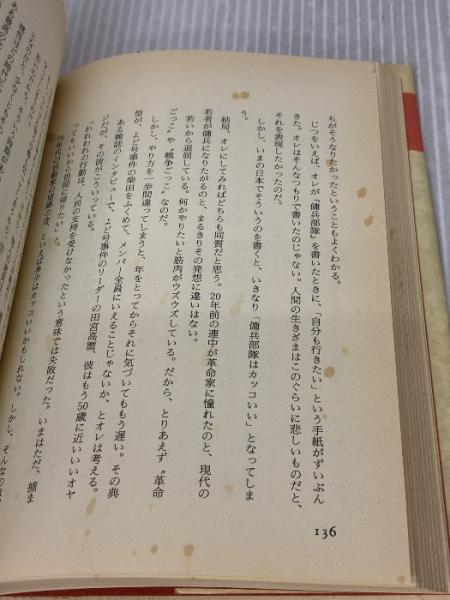 ちがそうなりたかったということもよくわかる。
じつをいえば、オレが『傭兵部隊』を書いたときに、「自分も行きたい」という手紙がずいぶん
きた。オレはそんなつもりで書いたのじゃない。人間の生きざまはこのぐらいに悲しいものだと、
それを表現したかったのだ。
しかし、いまの日本でそういうのを書くと、いきなり「傭兵部隊はカッコいい」となってしま
う。
結局、オレにしてみればどちらも同質だと思う。20年前の連中が革命家に憧れたのと、現代の
若者が傭兵になりたがるのと、まるきりその発想に違いはない。
若いから退屈している。何かやりたいと筋肉がウズウズしている。だから、とりあえず〝革命
ごっこ〟や〝戦争ごっこ〟なのだ。
しかし、やり方を一歩間違ってしまうと、年をとってからそれに気づいてももう遅い。その典
型が、よど号事件の柴田をふくめて、メンバー全員にいえることじゃないか、とオレは考える。
ある雑誌のインタビューで、よど号事件のリーダーの田宮高麿、彼はもう50歳に近いいいオヤ
ジだが、その彼がこういっている。
「われわれの行動は、人民の支持を受けなかったという意味では失敗だった。いまはただ、捕ま
ってもいいから祖国に帰りたい」と
カッコいいかもしれない。しかし、そんなのは
136